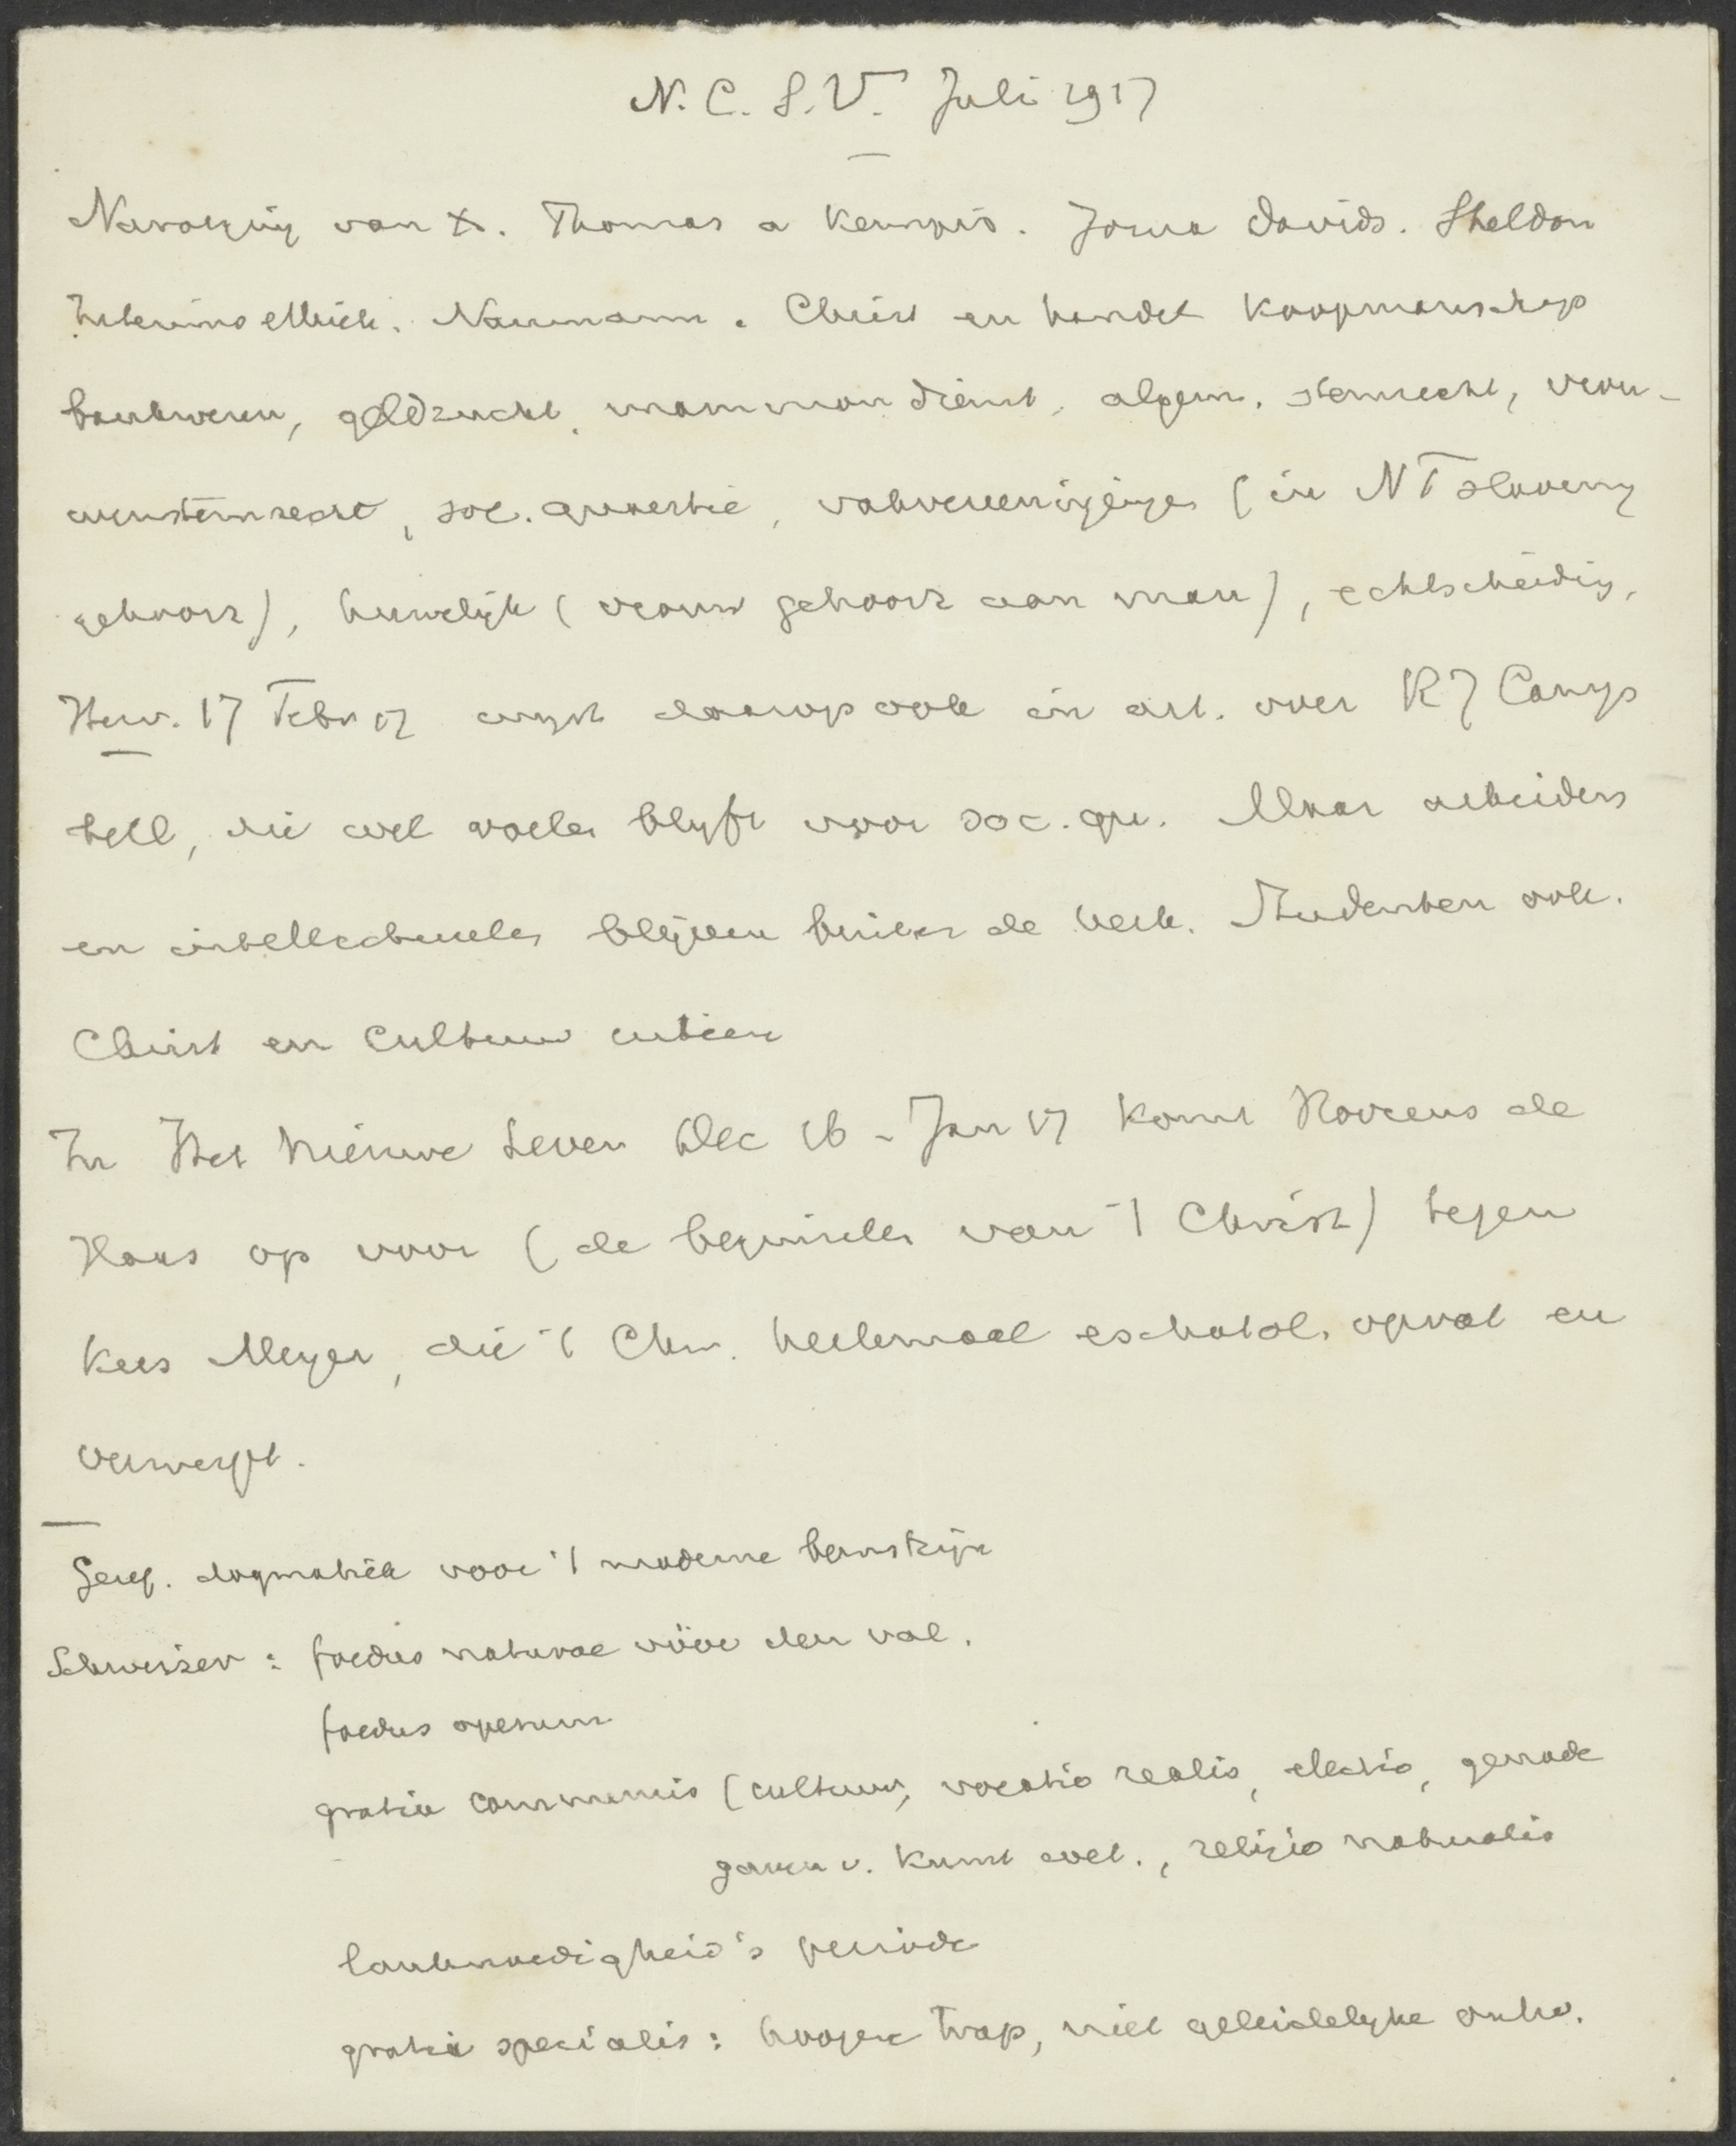 N.C.S.V. Juli 1917
Navolging van X. Thomas a Kempis. Jorua Davids. Sheldon
Interims ethiek. Naumann. Christ en handel Koopmanschap
bankwezen, geldzucht, mammondienst, algem. stemrecht, vrou-
wenstemrecht, soc. quaestie, vakvereenigingen (in NT slaverny
gehoorz), huwelijk (vrouw gehoorz aan man), echtscheiding,
Herv. 17 Febr 17 wyst daarop ook in art. over RJ Camp
bell, die wel voelen blyft voor soc. qu. Maar arbeiders
en intellectueelen blijven buiten de kerk. Studenten ook.
Christ en Cultuur
In Het Nieuwe Leven Dec 16 - Jan 17 komt Rovers de
Haas op voor (de beginselen van 't Christ) tegen
Kees Meyer, die 't Chr. heelemaal eschatol. opvat en
verwerpt.
Geref. dogmatiek voor 't moderne bewustzijn
Schweizer: foedus naturae vóór den val.
foedus operum
gratia communis (cultuur, vocatio realis, electio, genade
gaven v. kunst wet., religio naturalis
lankmoedigheid's periode
gratia specialis: hoogere trap, niet geleidelyke ontw.